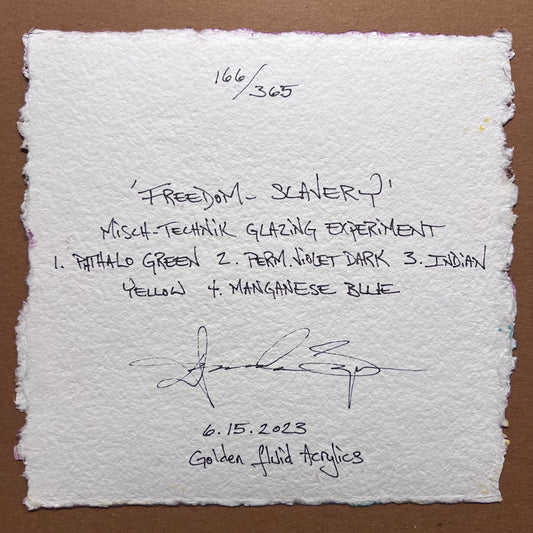 166/365
'FREEDOM - SLAVERY'
MISCH-TECHNIK GLAZING EXPERIMENT
1. PHTHALO GREEN 2. PERM. VIOLET DARK 3. INDIAN
YELLOW 4. MANGANESE BLUE
6.15.2023
Golden fluid Acrylics